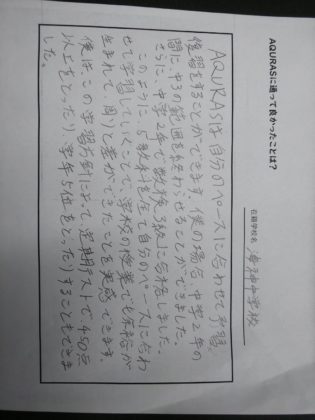 AQURASに通って良かったことは?
在籍学校名
中学校
AQURASは自分のペースに合わせて予習、
復習をすることができます。僕の場合、中学2年の
間に中3の範囲を終わらせることができました。
さらに、中学2年で数検3級に合格しました。
このように5教科を全て自分のペースに合わ
せて学習していくことで、学校の授業でも余裕が
生まれて、周りと差ができたことを実感できます。
僕は、この学習方針によって定期テストで450点
以上をとったり学年5位をとったりすることもできま
した。